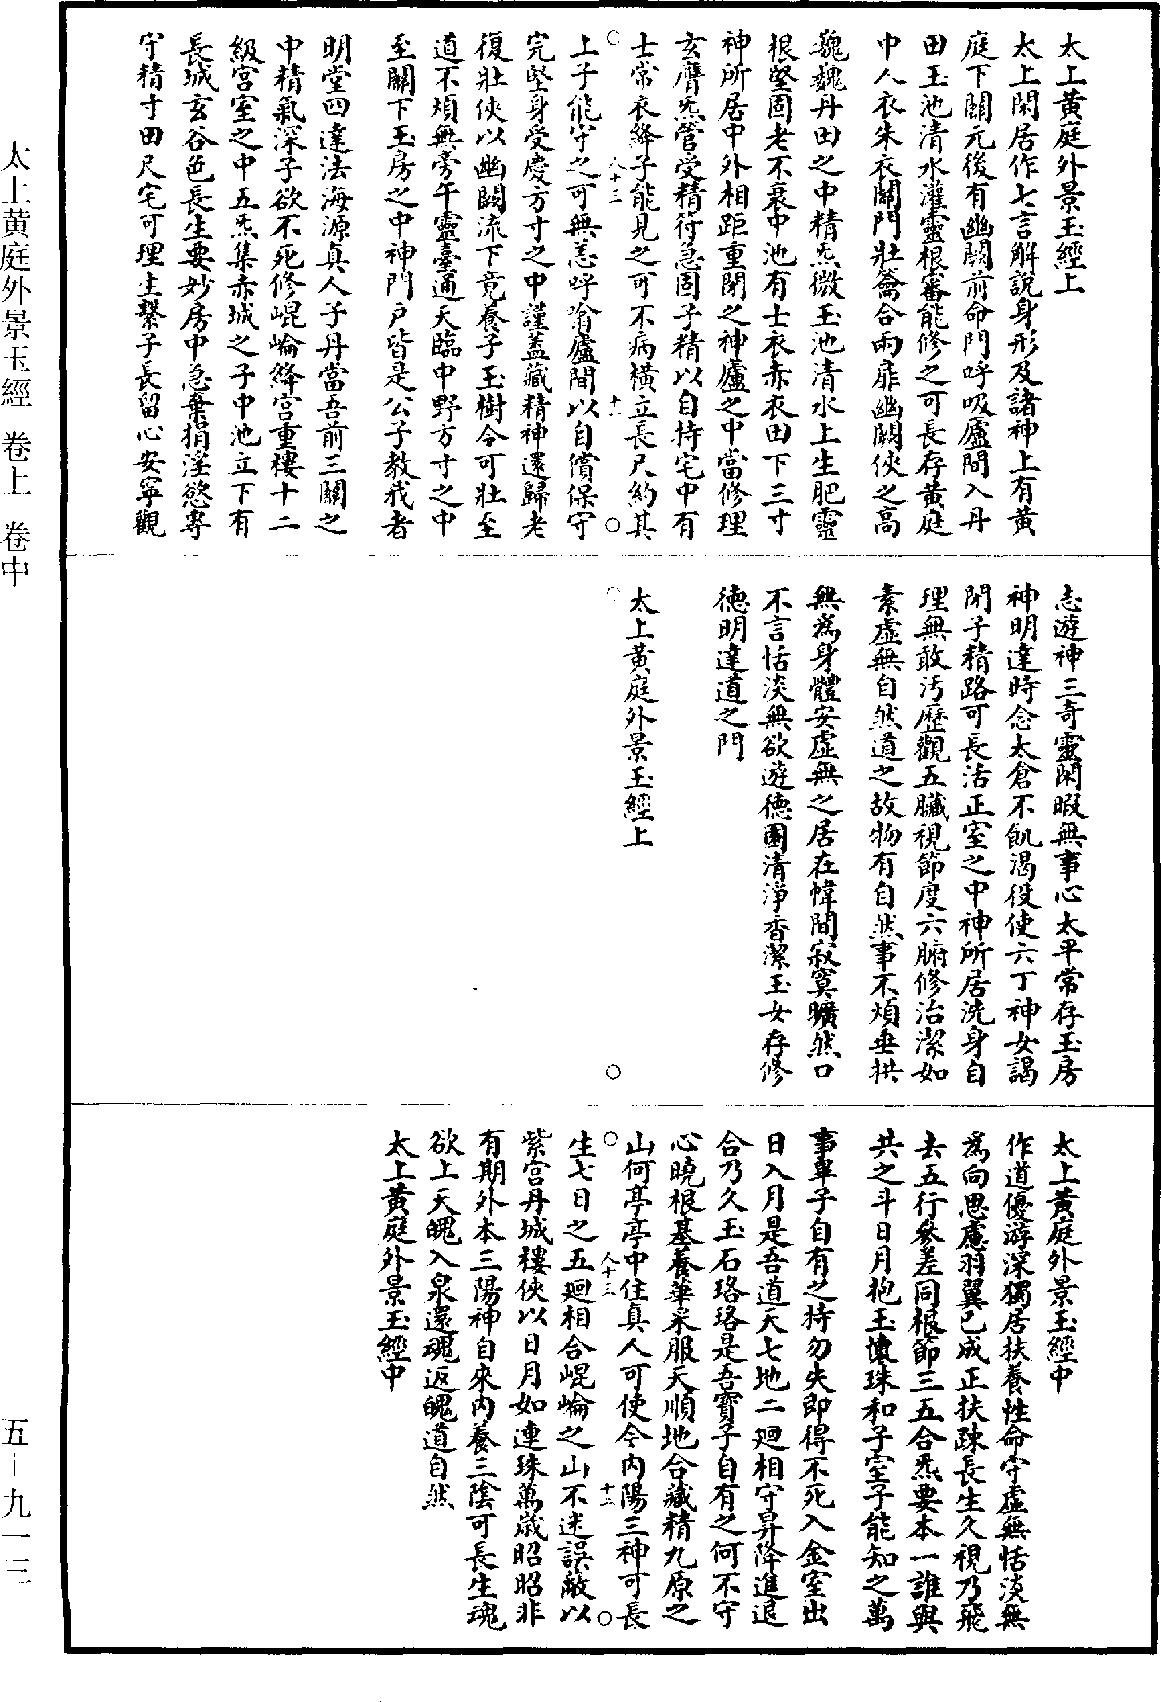 太上黃庭外景玉經上
太上閑居作七言解說身形及諸神上有黃
庭下關元後有幽闕前命門呼吸廬間入丹
田玉池清水灌靈根審能修之可長存黃庭
中人衣朱衣關門壯籥合兩扉幽闕俠之高
巍巍丹田之中精炁微玉池清水上生肥靈
根堅固老不衰中池有士衣赤衣田下三寸
神所居中外相距重閉之神廬之中當修理
玄膺炁管受精符急固子精以自持宅中有
士常衣絳子能見之可不病橫立長尺約其
上子能守之可無恙呼噏廬間以自償保守
完堅身受慶方寸之中謹蓋藏精神還歸老
復壯俠以幽闕流下竟養子玉樹令可壯至
道不煩無旁午靈臺通天臨中野方寸之中
至關下玉房之中神門戶皆是公子教我者
明堂四達法海源真人子丹當吾前三關之
中精氣深子欲不死修崐崘絳宮重樓十二
級宮室之中五炁集赤城之子中池立下有
長城玄谷邑長生要妙房中急棄捐淫慾專
守精寸田尺宅可理生繫子長留心安寧觀
志遊神三奇靈閑暇無事心太平常存玉房
神明達時念太倉不飢渴役使六丁神女謁
閉子精路可長活正室之中神所居洗身自
理無敢汚歷觀五臟視節度六腑修治潔如
素虛無自然道之故物有自然事不煩垂拱
無為身體安虛無之居在幃間寂寞曠然口
不言恬淡無欲遊德園清淨香潔玉女存修
德明達道之門
太上黃庭外景玉經上
太上黃庭外景玉經中
作道優游深獨居扶養性命守虛無恬淡無
為向思慮羽翼已成正扶踈長生久視乃飛
去五行參差同根節三五合炁要本一誰與
共之斗日月抱玉懷珠和子室子能知之萬
事畢子自有之持勿失即得不死入金室出
日入月是吾道天七地二廻相守昇降進退
合乃久玉石珞珞是吾寶子自有之何不守
心曉根基養華采服天順地合藏精九原之
山何亭亭中住真人可使令內陽三神可長
生七日之五廻相合崐崘之山不迷誤蔽以
紫宮丹城樓俠以日月如連珠萬歲昭昭非
有期外本三陽神自來內養三陰可長生魂
欲上天魄入泉還魂返魄道自然
太上黃庭外景玉經中
八十三
十一
八十三
十二
太上黄庭外景玉經 卷上 卷中
五—九一三